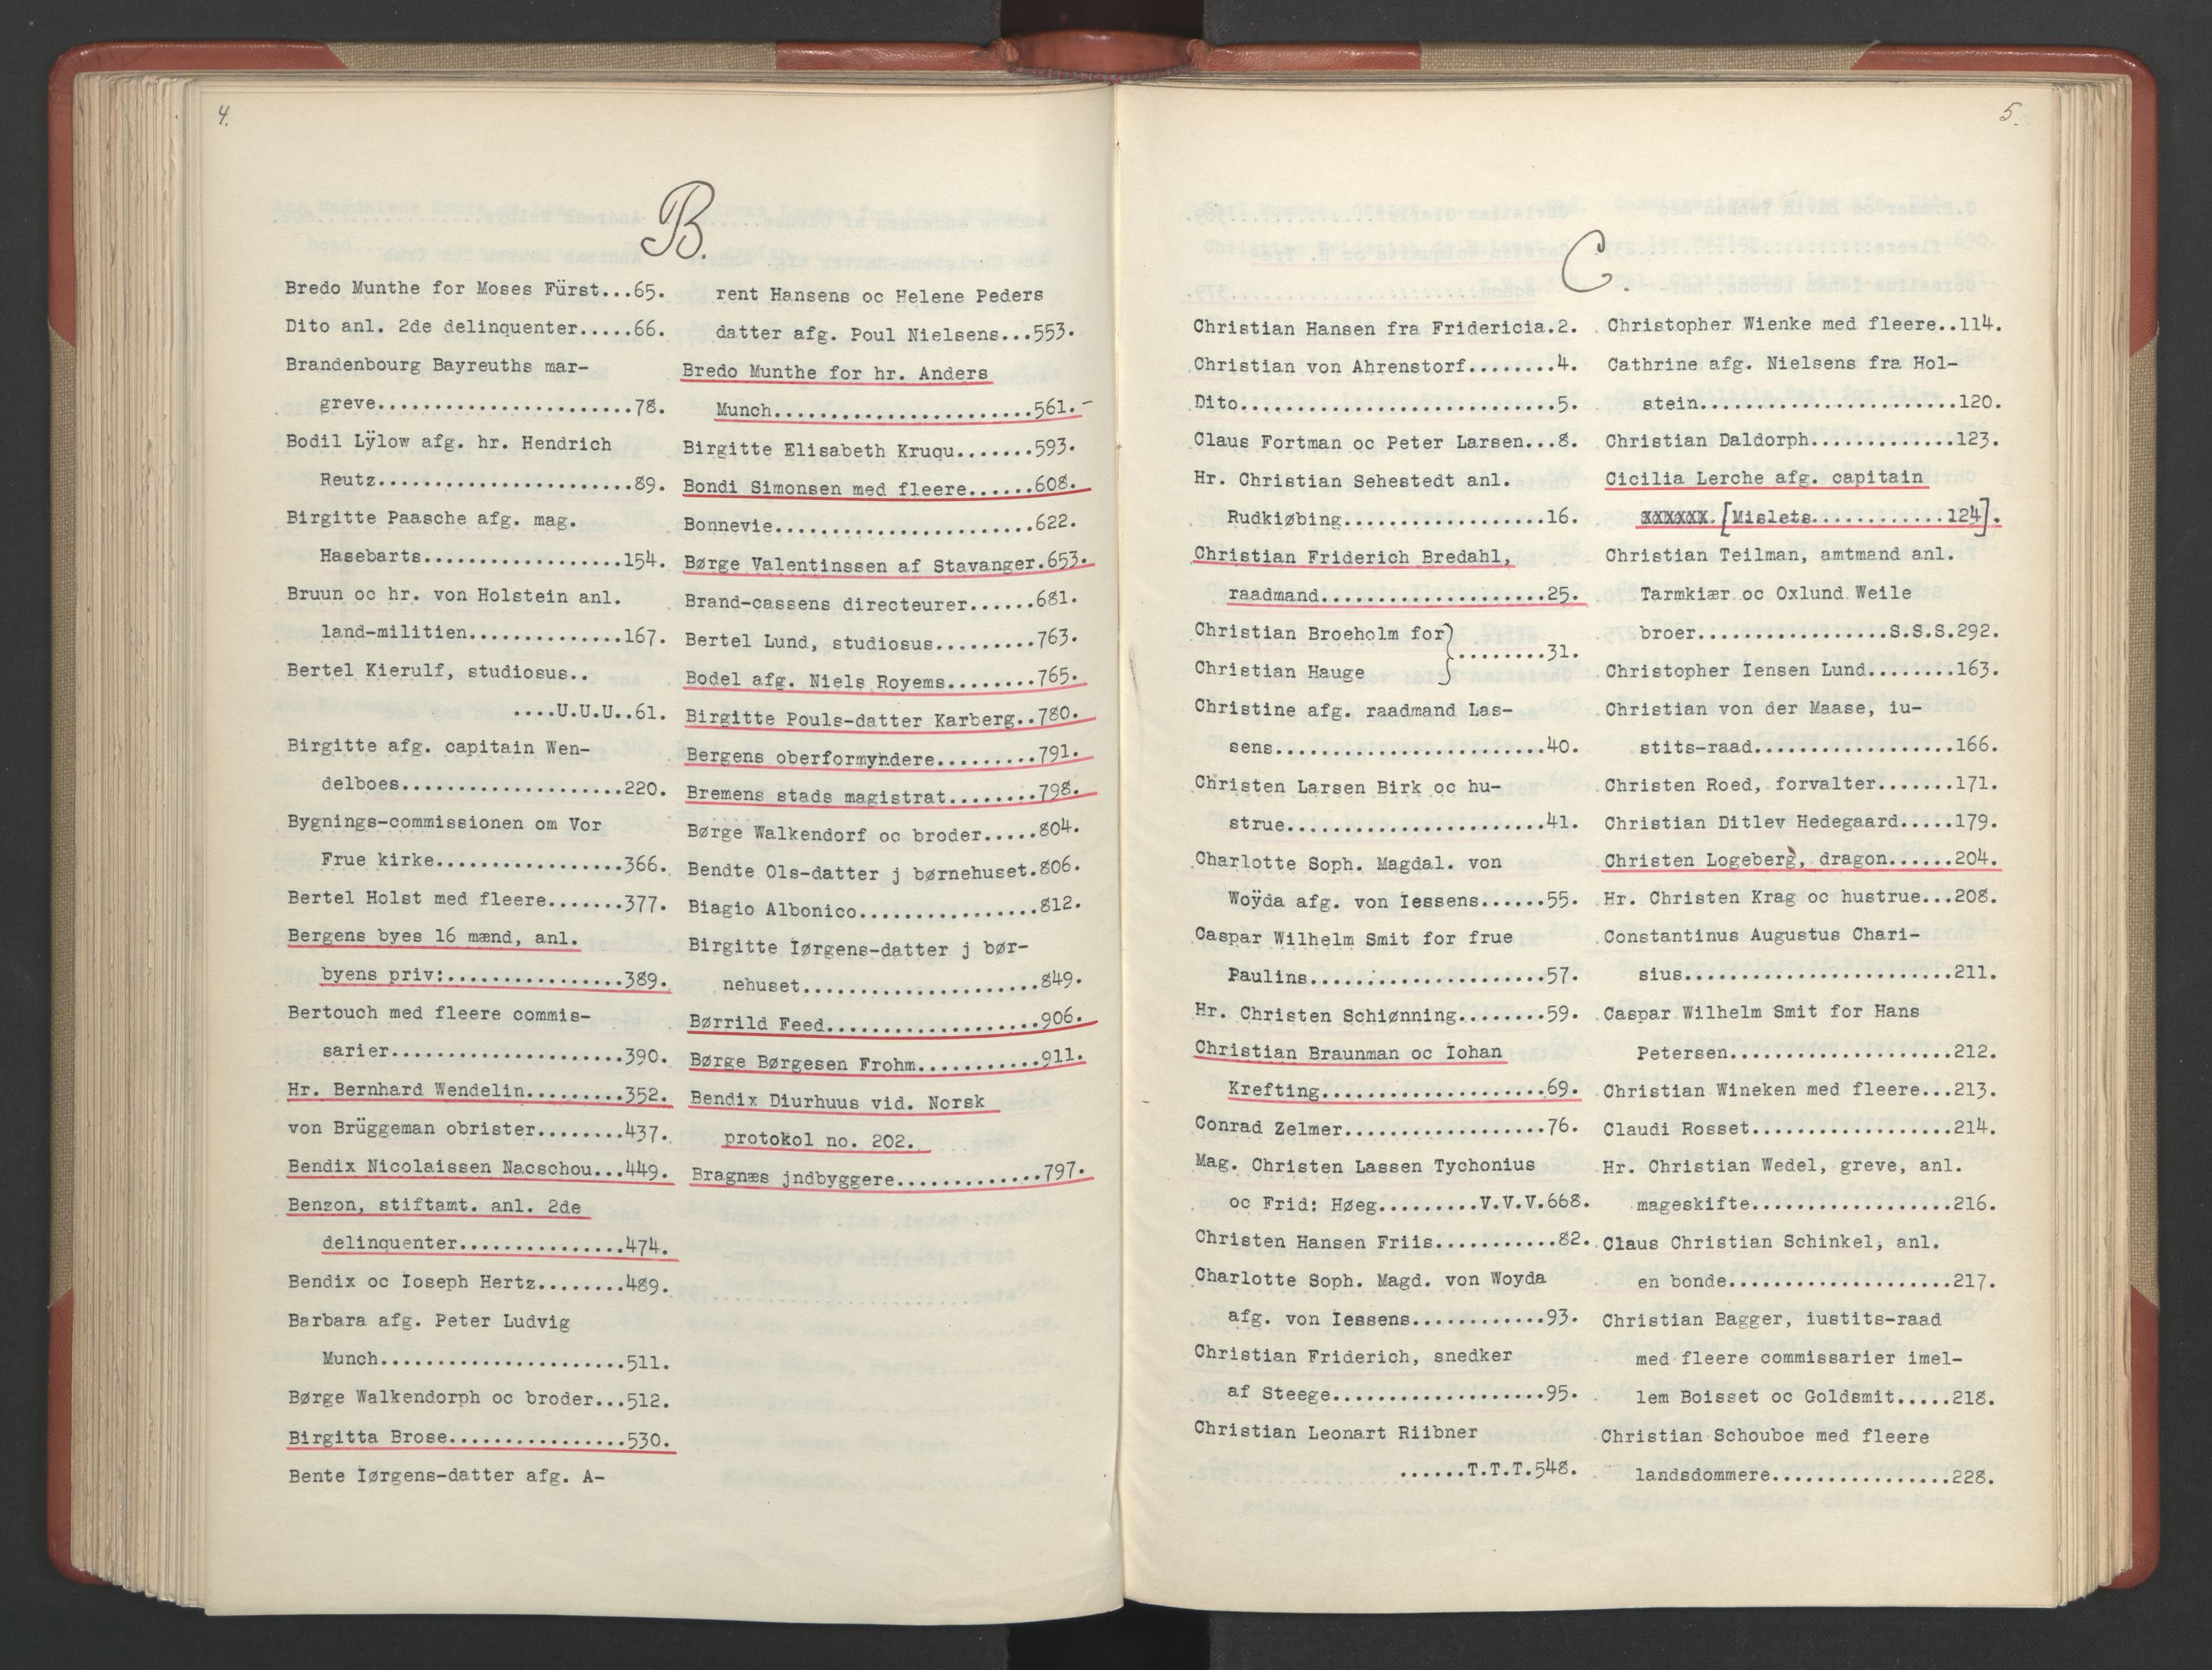 4.
B.
Bredo Munthe for Moses Fürst...65.
Dito anl. 2de delinquenter.....66.
Brandenbourg Bayreuths mar-
greve......................78.
Bodil Lÿlow afg. hr. Hendrich
Reutz......................89.
Birgitte Paasche afg. mag.
Hasebarts.................154.
Bruun oc hr. von Holstein anl.
land-militien.............167.
Bertel Kierulf, studiosus..
....U.U.U..61.
Birgitte afg. capitain Wen-
delboes...................220.
Bygnings-commissionen om Vor
Frue kirke................366.
Bertel Holst med fleere.......377.
Bergens byes 16 mænd, anl.
byens priv:...............389.
Bertouch med fleere commis-
sarier....................390.
Hr. Bernhard Wendelin.........352.
von Brüggeman obrister........437.
Bendix Nicolaissen Nacschou...449.
Benzon, stiftamt. anl. 2de
delinquenter..............474.
Bendix oc Ioseph Hertz........489.
Barbara afg. Peter Ludvig
Munch.....................511.
Børge Walkendorph oc broder...512.
Birgitta Brose................530.
Bente Iørgens-datter afg. A-
rent Hansens oc Helene Peders
datter afg. Poul Nielsens...553.
Bredo Munthe for hr. Anders
Munch......................561.-
Birgitte Elisabeth Kruqu.......593.
Bondi Simonsen med fleere......608.
Bonnevie.......................622.
Børge Valentinssen af Stavanger.653.
Brand-cassens directeurer......681.
Bertel Lund, studiosus.........763.
Bodel afg. Niels Royems........765.
Birgitte Pouls-datter Karberg..780.
Bergens oberformyndere.........791.
Bremens stads magistrat........798.
Børge Walkendorf oc broder.....804.
Bendte Ols-datter j børnehuset.806.
Biagio Albonico................812.
Birgitte Iørgens-datter j bør-
nehuset.....................849.
Børrild Feed...................906.
Børge Børgesen Frohm...........911.
Bendix Diurhuus vid. Norsk
protokol no. 202.
Bragnæs jndbyggere.............797.
5.
C.
Christian Hansen fra Fridericia.2.
Christian von Ahrenstorf........4.
Dito............................5.
Claus Fortman oc Peter Larsen...8.
Hr. Christian Sehestedt anl.
Rudkiøbing..................16.
Christian Friderich Bredahl,
raadmand....................25.
Christian Broeholm for
} ........31.
Christian Hauge
Christine afg. raadmand Las-
sens........................40.
Christen Larsen Birk oc hu-
strue.......................41.
Charlotte Soph. Magdal. von
Woÿda afg. von Iessens......55.
Caspar Wilhelm Smit for frue
Paulins.....................57.
Hr. Christen Schiønning........59.
Christian Braunman oc Iohan
Krefting....................69.
Conrad Zelmer..................76.
Mag. Christen Lassen Tychonius
oc Frid: Høeg.........V.V.V.668.
Christen Hansen Friis...........82.
Charlotte Soph. Magd. von Woyda
afg. von Iessens............93.
Christian Friderich, snedker
af Steege...................95.
Christian Leonart Riibner
......T.T.T.548.
Christopher Wienke med fleere..114.
Cathrine afg. Nielsens fra Hol-
stein.......................120.
Christian Daldorph.............123.
Cicilia Lerche afg. capitain
XXXXXX.[Mislets............124].
Christian Teilman, amtmand anl.
Tarmkiær oc Oxlund Weile
broer.................S.S.S.292.
Christopher Iensen Lund........163.
Christian von der Maase, iu-
stits-raad..................166.
Christen Roed, forvalter.......171.
Christian Ditlev Hedegaard.....179.
Christen Logeberg, dragon......204.
Hr. Christen Krag oc hustrue...208.
Constantinus Augustus Chari-
sius........................211.
Caspar Wilhelm Smit for Hans
Petersen....................212.
Christian Wineken med fleere...213.
Claudi Rosset..................214.
Hr. Christian Wedel, greve, anl.
mageskifte..................216.
Claus Christian Schinkel, anl.
en bonde....................217.
Christian Bagger, iustits-raad
med fleere commissarier imel-
lem Boisset oc Goldsmit.....218.
Christian Schouboe med fleere
landsdommere................228.